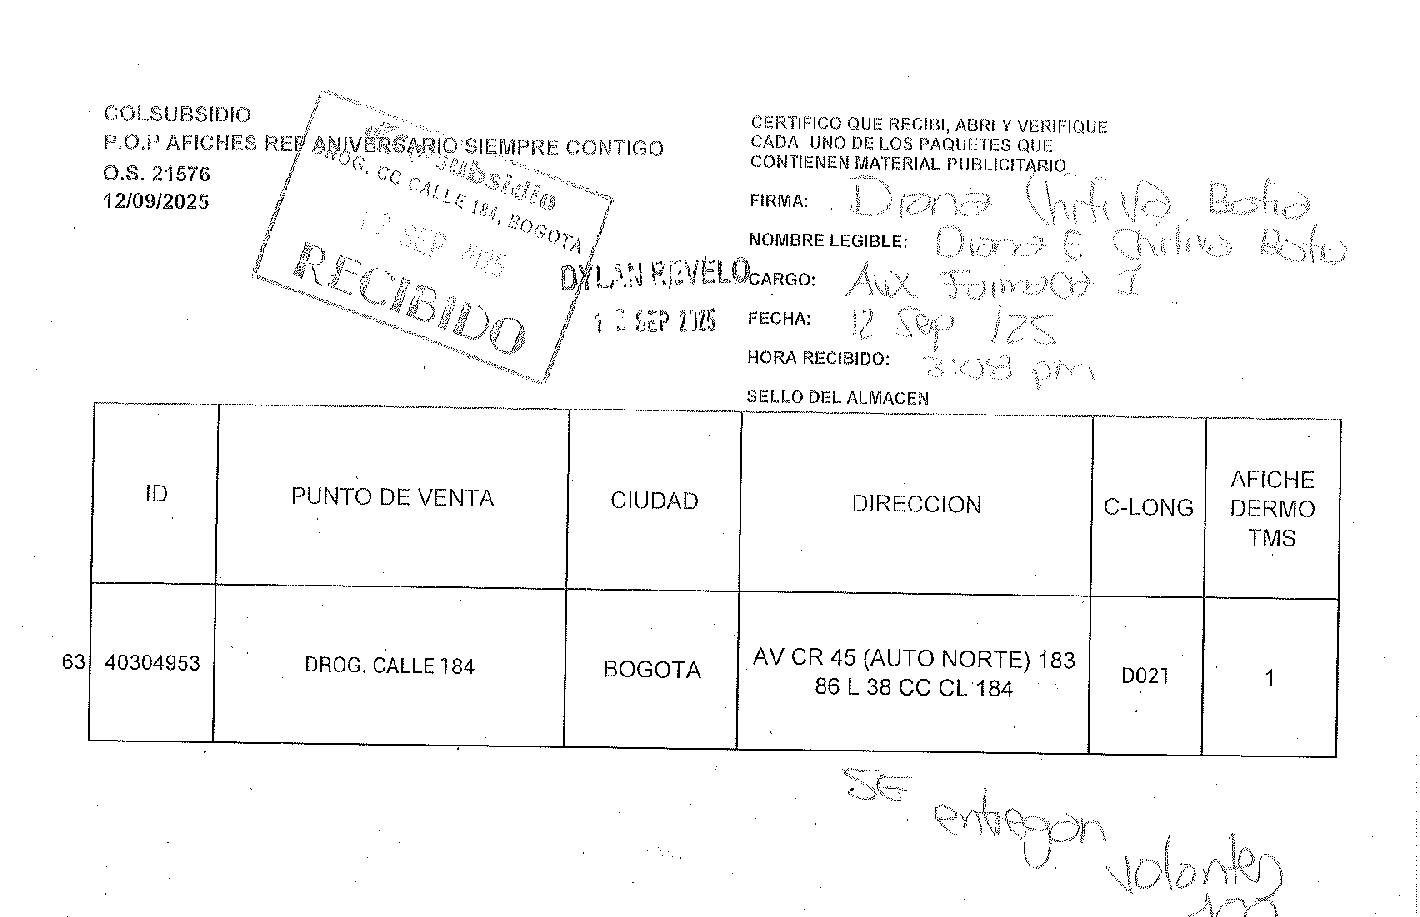 COLSUBSIDIO
P.O.P AFICHES REF ANIVERSARIO SIEMPRE CONTIGO
O.S. 21576
12/09/2025
DROG. CC CALLE 184, BOGOTA
12 SEP 2025
RECIBIDO
DYLAN REVELO
SEP 2025
CERTIFICO QUE RECIBI, ABRI Y VERIFIQUE
CADA UNO DE LOS PAQUETES QUE
CONTIENEN MATERIAL PUBLICITARIO
FIRMA: Diana Chitiva Botia
NOMBRE LEGIBLE: Diana E Chitiva Botia
CARGO: Aux Farmacia I
FECHA: 12 Sep /25
HORA RECIBIDO: 3:08 pm
SELLO DEL ALMACEN
ID PUNTO DE VENTA CIUDAD DIRECCION C-LONG AFICHE DERMO TMS
63 40304953 DROG. CALLE 184 BOGOTA AV CR 45 (AUTO NORTE) 183 86 L 38 CC CL 184 D021 1
SE
entregan
volantes